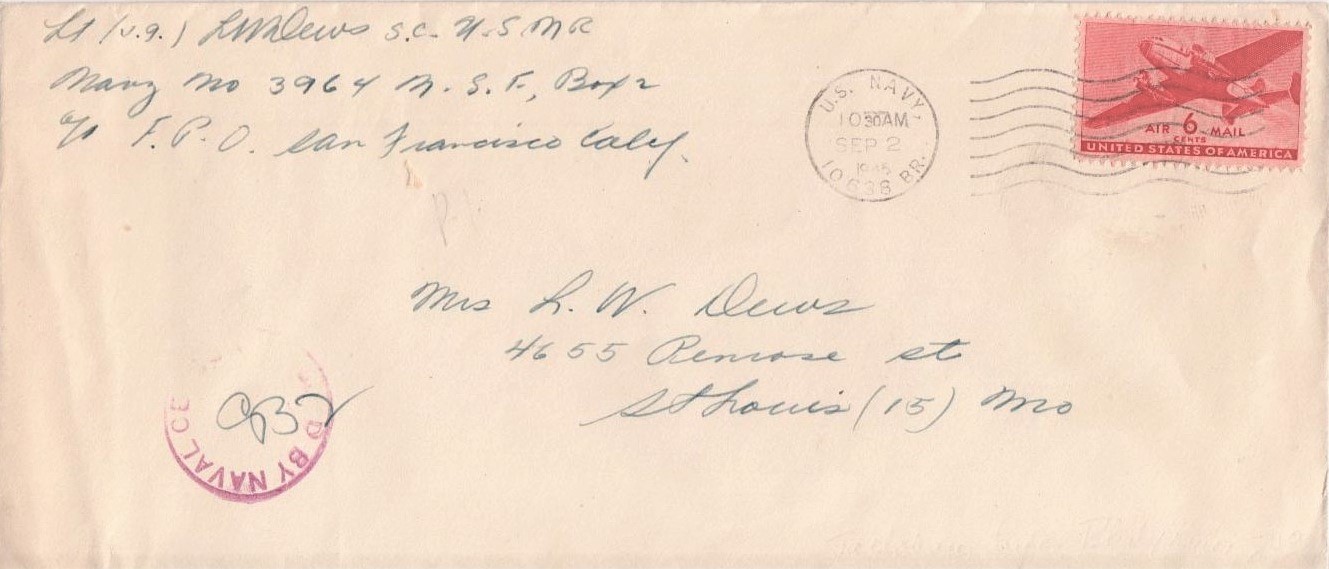 Lt (J.g.) L W Dews S.C. U.S.N.R
Navy No 3964 N.S.F., Box 2
c/o F.P.O. San Francisco Calif.
U.S. NAVY
10 30 AM
SEP 2
1945
10638 BR.
AIR 6 MAIL
CENTS
UNITED STATES OF AMERICA
Mrs L. W. Dews
4655 Penrose st
St Louis (15) Mo
D BY NAVAL CE